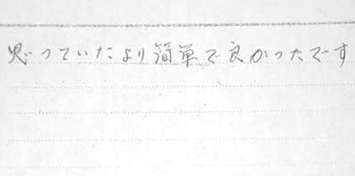 思っていたより簡単で良かったです